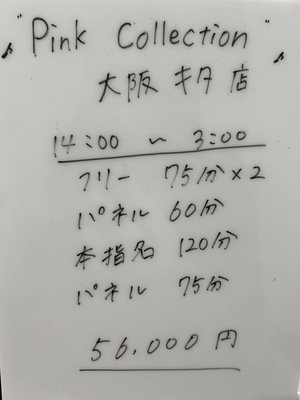 ♪"Pink Collection"♪
大阪キタ店
14:00 ~ 3:00
フリー 75分×2
パネル 60分
本指名 120分
パネル 75分
56.000円